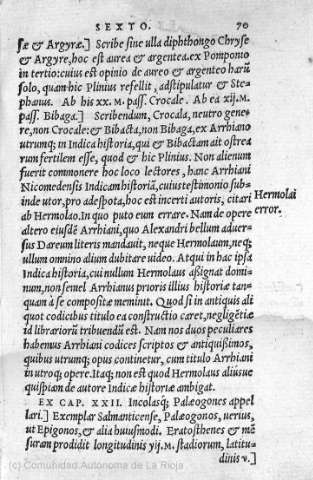 SEXTO. 70
sæ & Argyræ.] Scribe sine ulla diphthongo Chryse
& Argyre, hoc est aurea & argentea. ex Pomponio
in tertio: cuius est opinio de aureo & argenteo harũ
solo, quam hic Plinius refellit, adstipulatur & Ste-
phanus. Ab his xx. M. pass. Crocale. Ab ea xij. M.
pass. Bibaga.] Scribendum, Crocala, neutro gene-
re, non Crocale: & Bibacta, non Bibaga, ex Arrhiano
utrumq; in Indica historia, qui & Bibactam ait ostrea
rum fertilem esse, quod & hic Plinius. Non alienum
fuerit commonere hoc loco lectores, hanc Arrhiani
Nicomedensis Indicam historiã, cuius testimonio sub-
inde utor, pro adespota, hoc est incerti autoris, citari
ab Hermolao. In quo puto eum errare. Nam de opere
altero eiusdẽ Arrhiani, quo Alexandri bellum aduer-
sus Dareum literis mandauit, neque Hermolaum, neq;
ullum omnino alium dubitare uideo. Atqui in hac ipsa
Indica historia, cui nullum Hermolaus assignat domi-
num, non semel Arrhianus prioris illius historiæ tan-
quam à se compositæ meminit. Quod si in antiquis ali
quot codicibus titulo ea constructio caret, negligẽtiæ
id librariorũ tribuendũ est. Nam nos duos peculiares
habemus Arrhiani codices scriptos & antiquissimos,
quibus utrumq; opus continetur, cum titulo Arrhiani
in utroq; opere. Itaq; non est quod Hermolaus aliusue
quispiam de autore Indicæ historiæ ambigat.
EX CAP. XXII. Incolasq; Palæogones appel
lari.] Exemplar Salmanticense, Palæogonos, uerius,
ut Epigonos, & alia huiusmodi. Eratosthenes & mẽ
suram prodidit longitudinis vij. M. stadiorum, latitu-
dinis v.]
Hermolai
error.
(c) Comunidad Autónoma de La Rioja